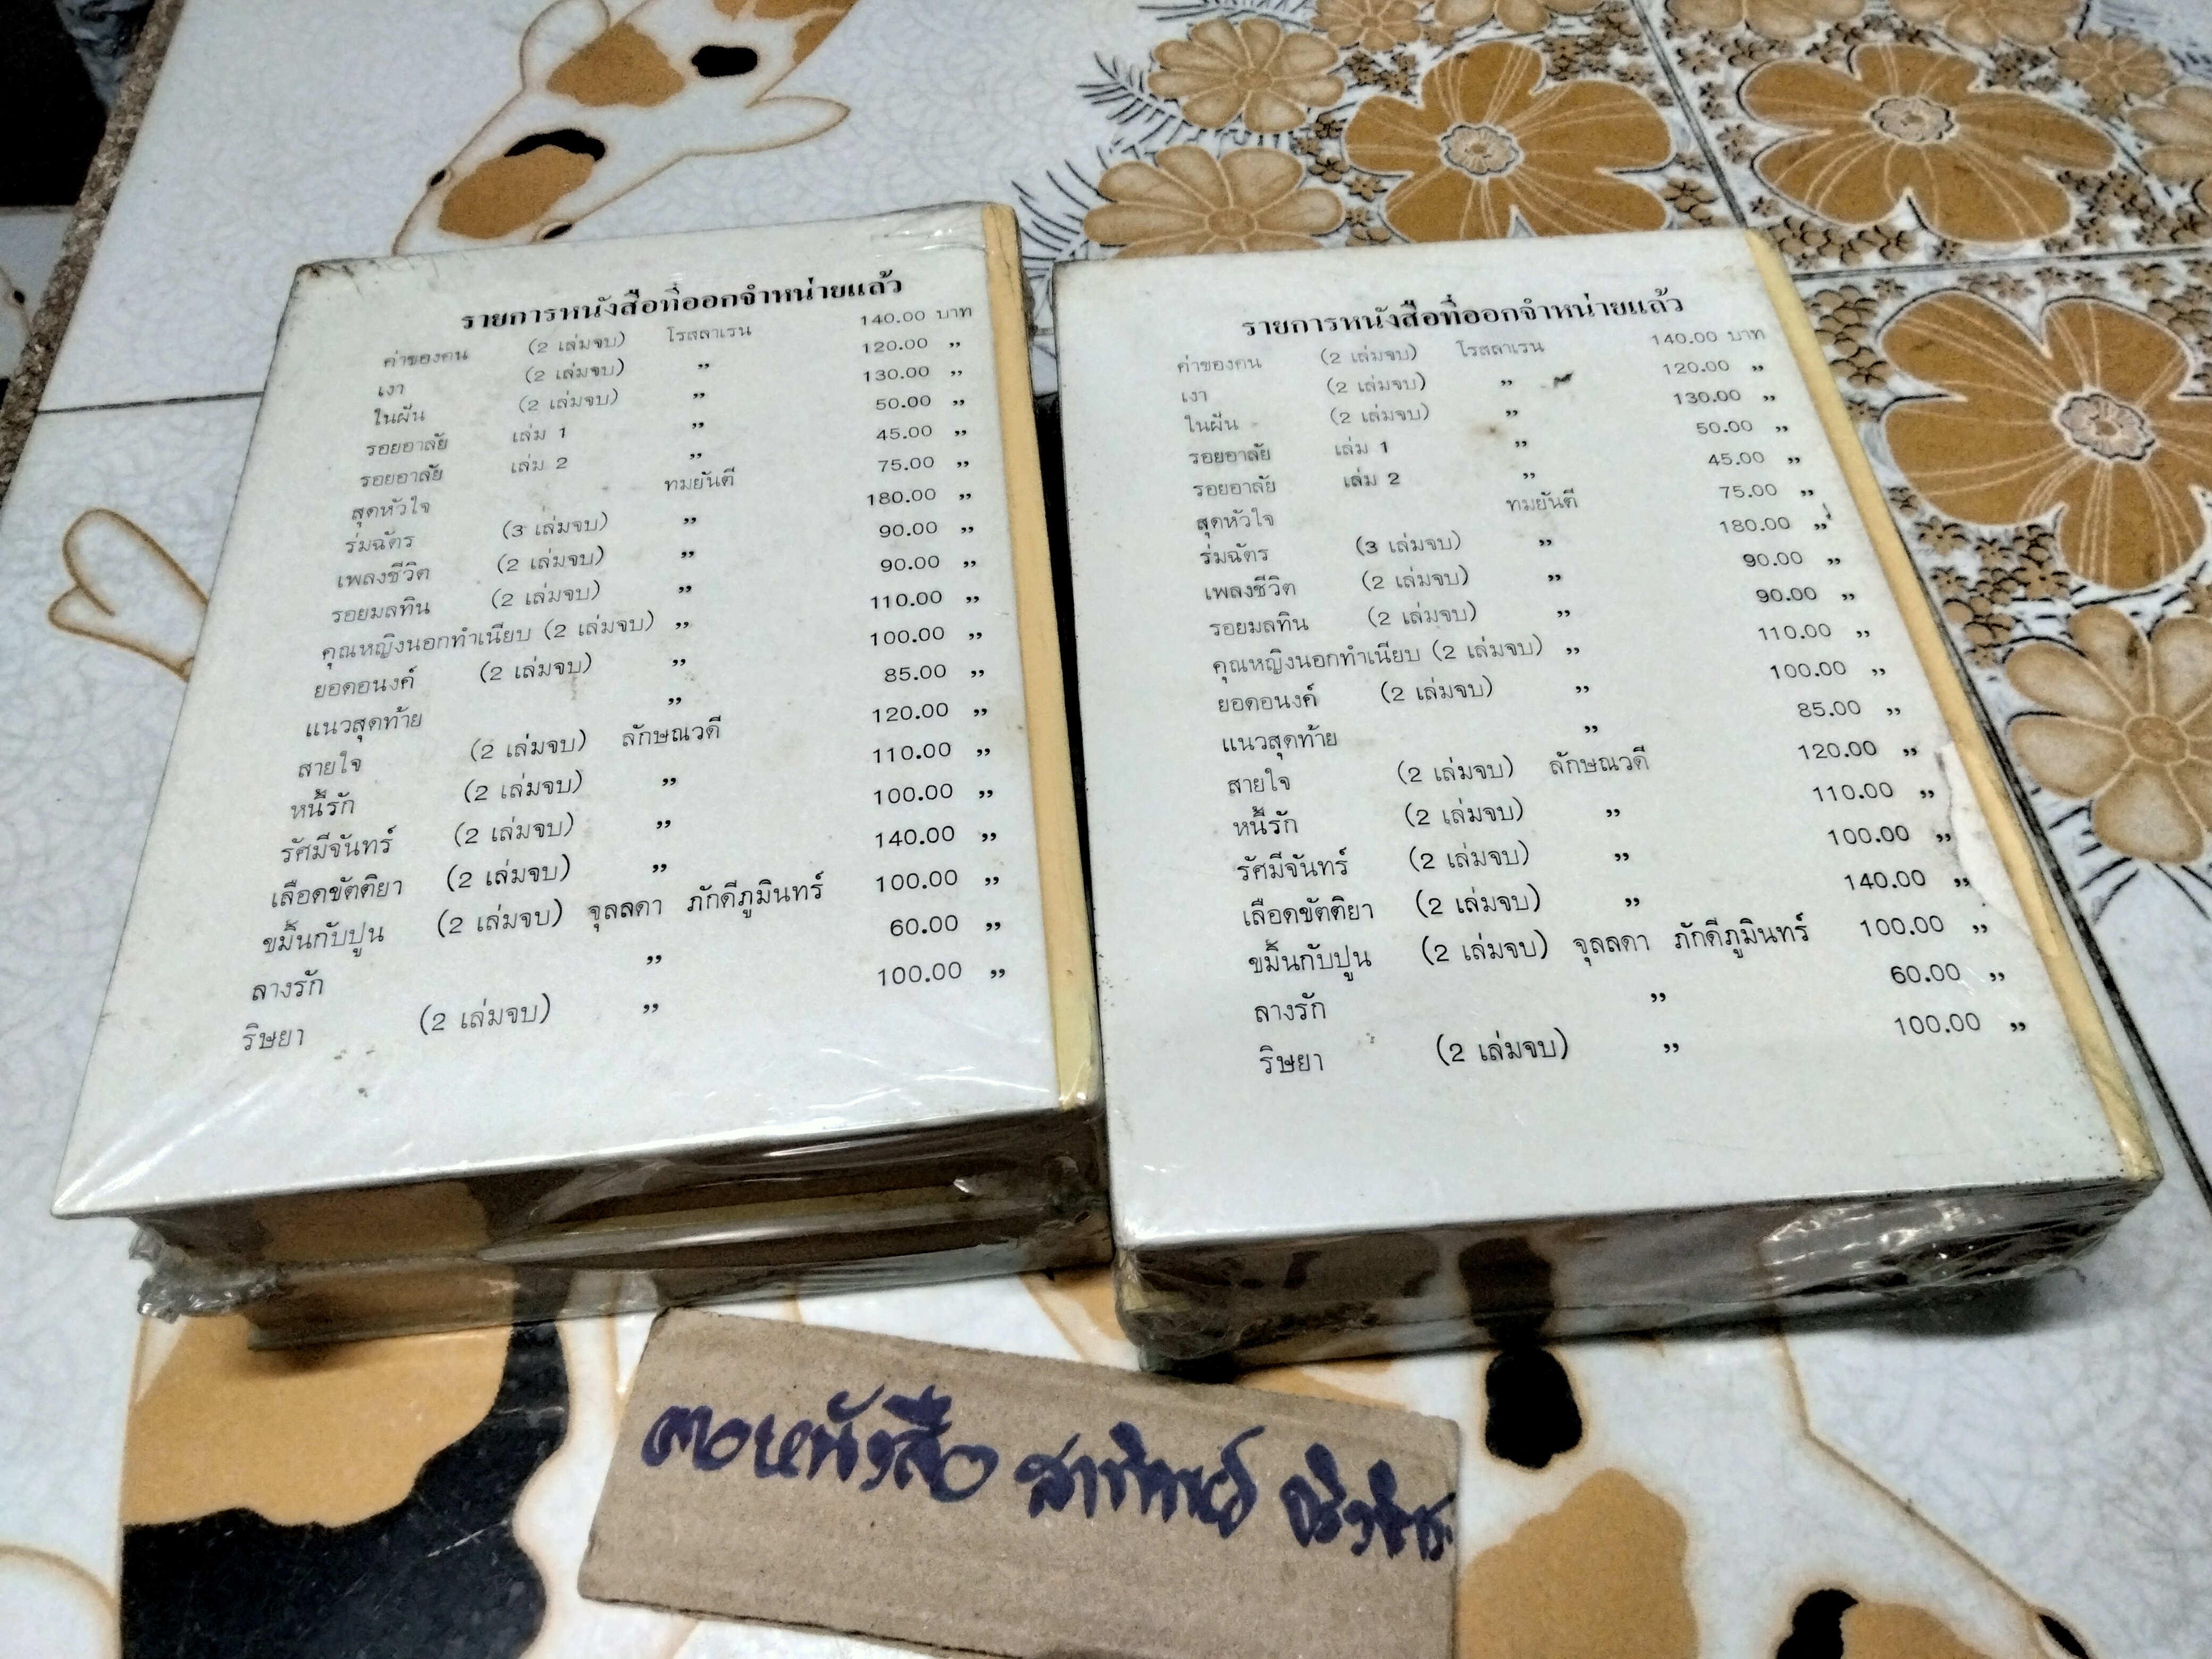 รายการหนังสือที่ออกจำหน่ายแล้ว
ค่าของคน (2 เล่มจบ) โรสลาเรน 140.00 บาท
เงา (2 เล่มจบ) ,, 120.00 ,,
ในฝัน (2 เล่มจบ) ,, 130.00 ,,
รอยอาลัย เล่ม 1 ,, 50.00 ,,
รอยอาลัย เล่ม 2 ,, 45.00 ,,
สุดหัวใจ ทมยันตี 75.00 ,,
ร่มฉัตร (3 เล่มจบ) ,, 180.00 ,,
เพลงชีวิต (2 เล่มจบ) ,, 90.00 ,,
รอยมลทิน (2 เล่มจบ) ,, 90.00 ,,
คุณหญิงนอกทำเนียบ (2 เล่มจบ) ,, 110.00 ,,
ยอดอนงค์ (2 เล่มจบ) ,, 100.00 ,,
แนวสุดท้าย ,, 85.00 ,,
สายใจ (2 เล่มจบ) ลักษณวดี 120.00 ,,
หนี้รัก (2 เล่มจบ) ,, 110.00 ,,
รัศมีจันทร์ (2 เล่มจบ) ,, 100.00 ,,
เลือดขัตติยา (2 เล่มจบ) ,, 140.00 ,,
ขมิ้นกับปูน (2 เล่มจบ) จุลลดา ภักดีภูมินทร์ 100.00 ,,
ลางรัก ,, 60.00 ,,
ริษยา (2 เล่มจบ) ,, 100.00 ,,
รายการหนังสือที่ออกจำหน่ายแล้ว
ค่าของคน (2 เล่มจบ) โรสลาเรน 140.00 บาท
เงา (2 เล่มจบ) ,, 120.00 ,,
ในฝัน (2 เล่มจบ) ,, 130.00 ,,
รอยอาลัย เล่ม 1 ,, 50.00 ,,
รอยอาลัย เล่ม 2 ,, 45.00 ,,
สุดหัวใจ ทมยันตี 75.00 ,,
ร่มฉัตร (3 เล่มจบ) ,, 180.00 ,,
เพลงชีวิต (2 เล่มจบ) ,, 90.00 ,,
รอยมลทิน (2 เล่มจบ) ,, 90.00 ,,
คุณหญิงนอกทำเนียบ (2 เล่มจบ) ,, 110.00 ,,
ยอดอนงค์ (2 เล่มจบ) ,, 100.00 ,,
แนวสุดท้าย ,, 85.00 ,,
สายใจ (2 เล่มจบ) ลักษณวดี 120.00 ,,
หนี้รัก (2 เล่มจบ) ,, 110.00 ,,
รัศมีจันทร์ (2 เล่มจบ) ,, 100.00 ,,
เลือดขัตติยา (2 เล่มจบ) ,, 140.00 ,,
ขมิ้นกับปูน (2 เล่มจบ) จุลลดา ภักดีภูมินทร์ 100.00 ,,
ลางรัก ,, 60.00 ,,
ริษยา (2 เล่มจบ) ,, 100.00 ,,